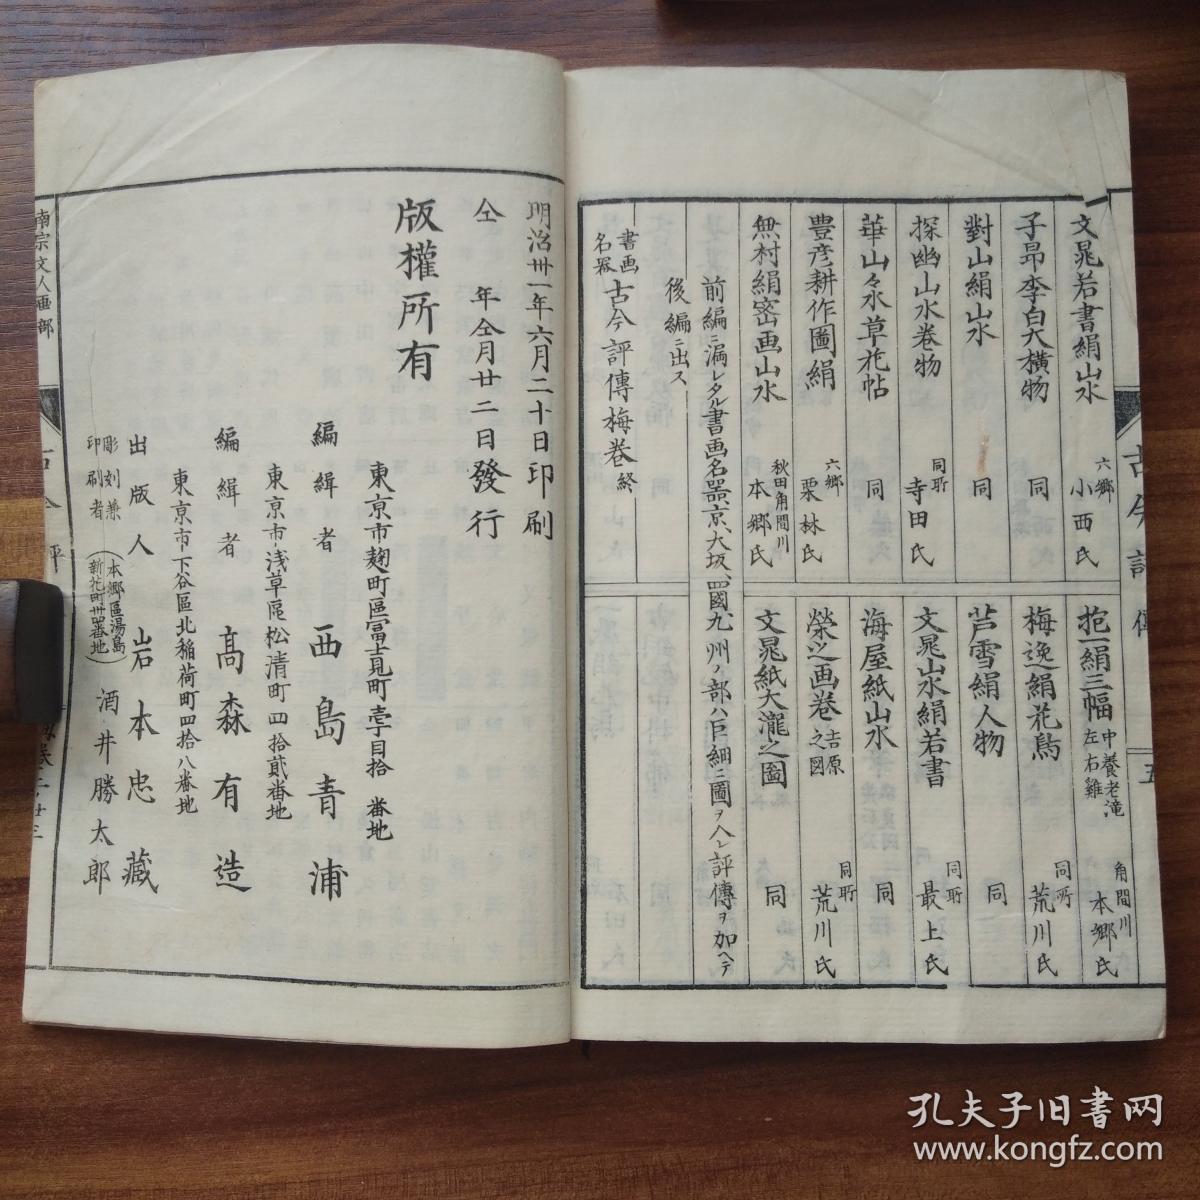 文晁若書絹山水 六郷 小西氏
子昂李白大横物 同
對山絹山水 同
探幽山水卷物 同所 寺田氏
華山々水草花帖 同
豊彦耕作圖絹 六郷 栗林氏
無村絹密画山水 秋田角間川 本郷氏
抱一絹三幅 中養老滝 左右雞 角間川 本郷氏
梅逸絹花鳥 同所 荒川氏
芦雪絹人物 同
文晁山水絹若書 同所 最上氏
海屋紙山水 同
榮之画卷 吉原之図 同所 荒川氏
文晁紙大瀧之圖 同
前編ニ漏レタル書画名器京、大坂、四國九州ノ部ハ巨細ニ圖ヲ入レ評傳ヲ加ヘテ
後編ニ出ス
書画名器 古今評傳梅卷終
古今評傳
五
明治卅一年六月二十日印刷
仝 年仝月廿二日發行
版權所有
東京市麹町區富士見町壱丁目拾 番地
編緝者 西島青浦
東京市浅草區松清町四拾貳番地
編緝者 髙森有造
東京市下谷區北稲荷町四拾八番地
出版人 岩本忠藏
彫刻兼印刷者 (本郷區湯島新花町卅四番地) 酒井勝太郎
南宗文人画部
古今評
孔夫子旧书网
www.kongfz.com